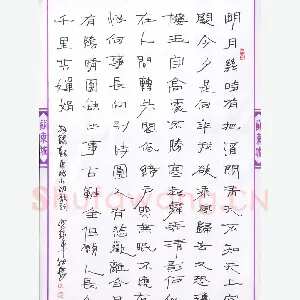 明月幾時有把酒問青天不知天上宮
闕今夕是何年我欲乘風歸去又恐瓊
樓玉宇高處不勝寒起舞弄清影何似
在人間轉朱閣低綺戶照無眠不應有
恨何事長向別時圓人有悲歡離合月
有陰晴圓缺此事古難全但願人長久
千里共嬋娟
蘇東坡
蘇東坡
Shufawang.CN